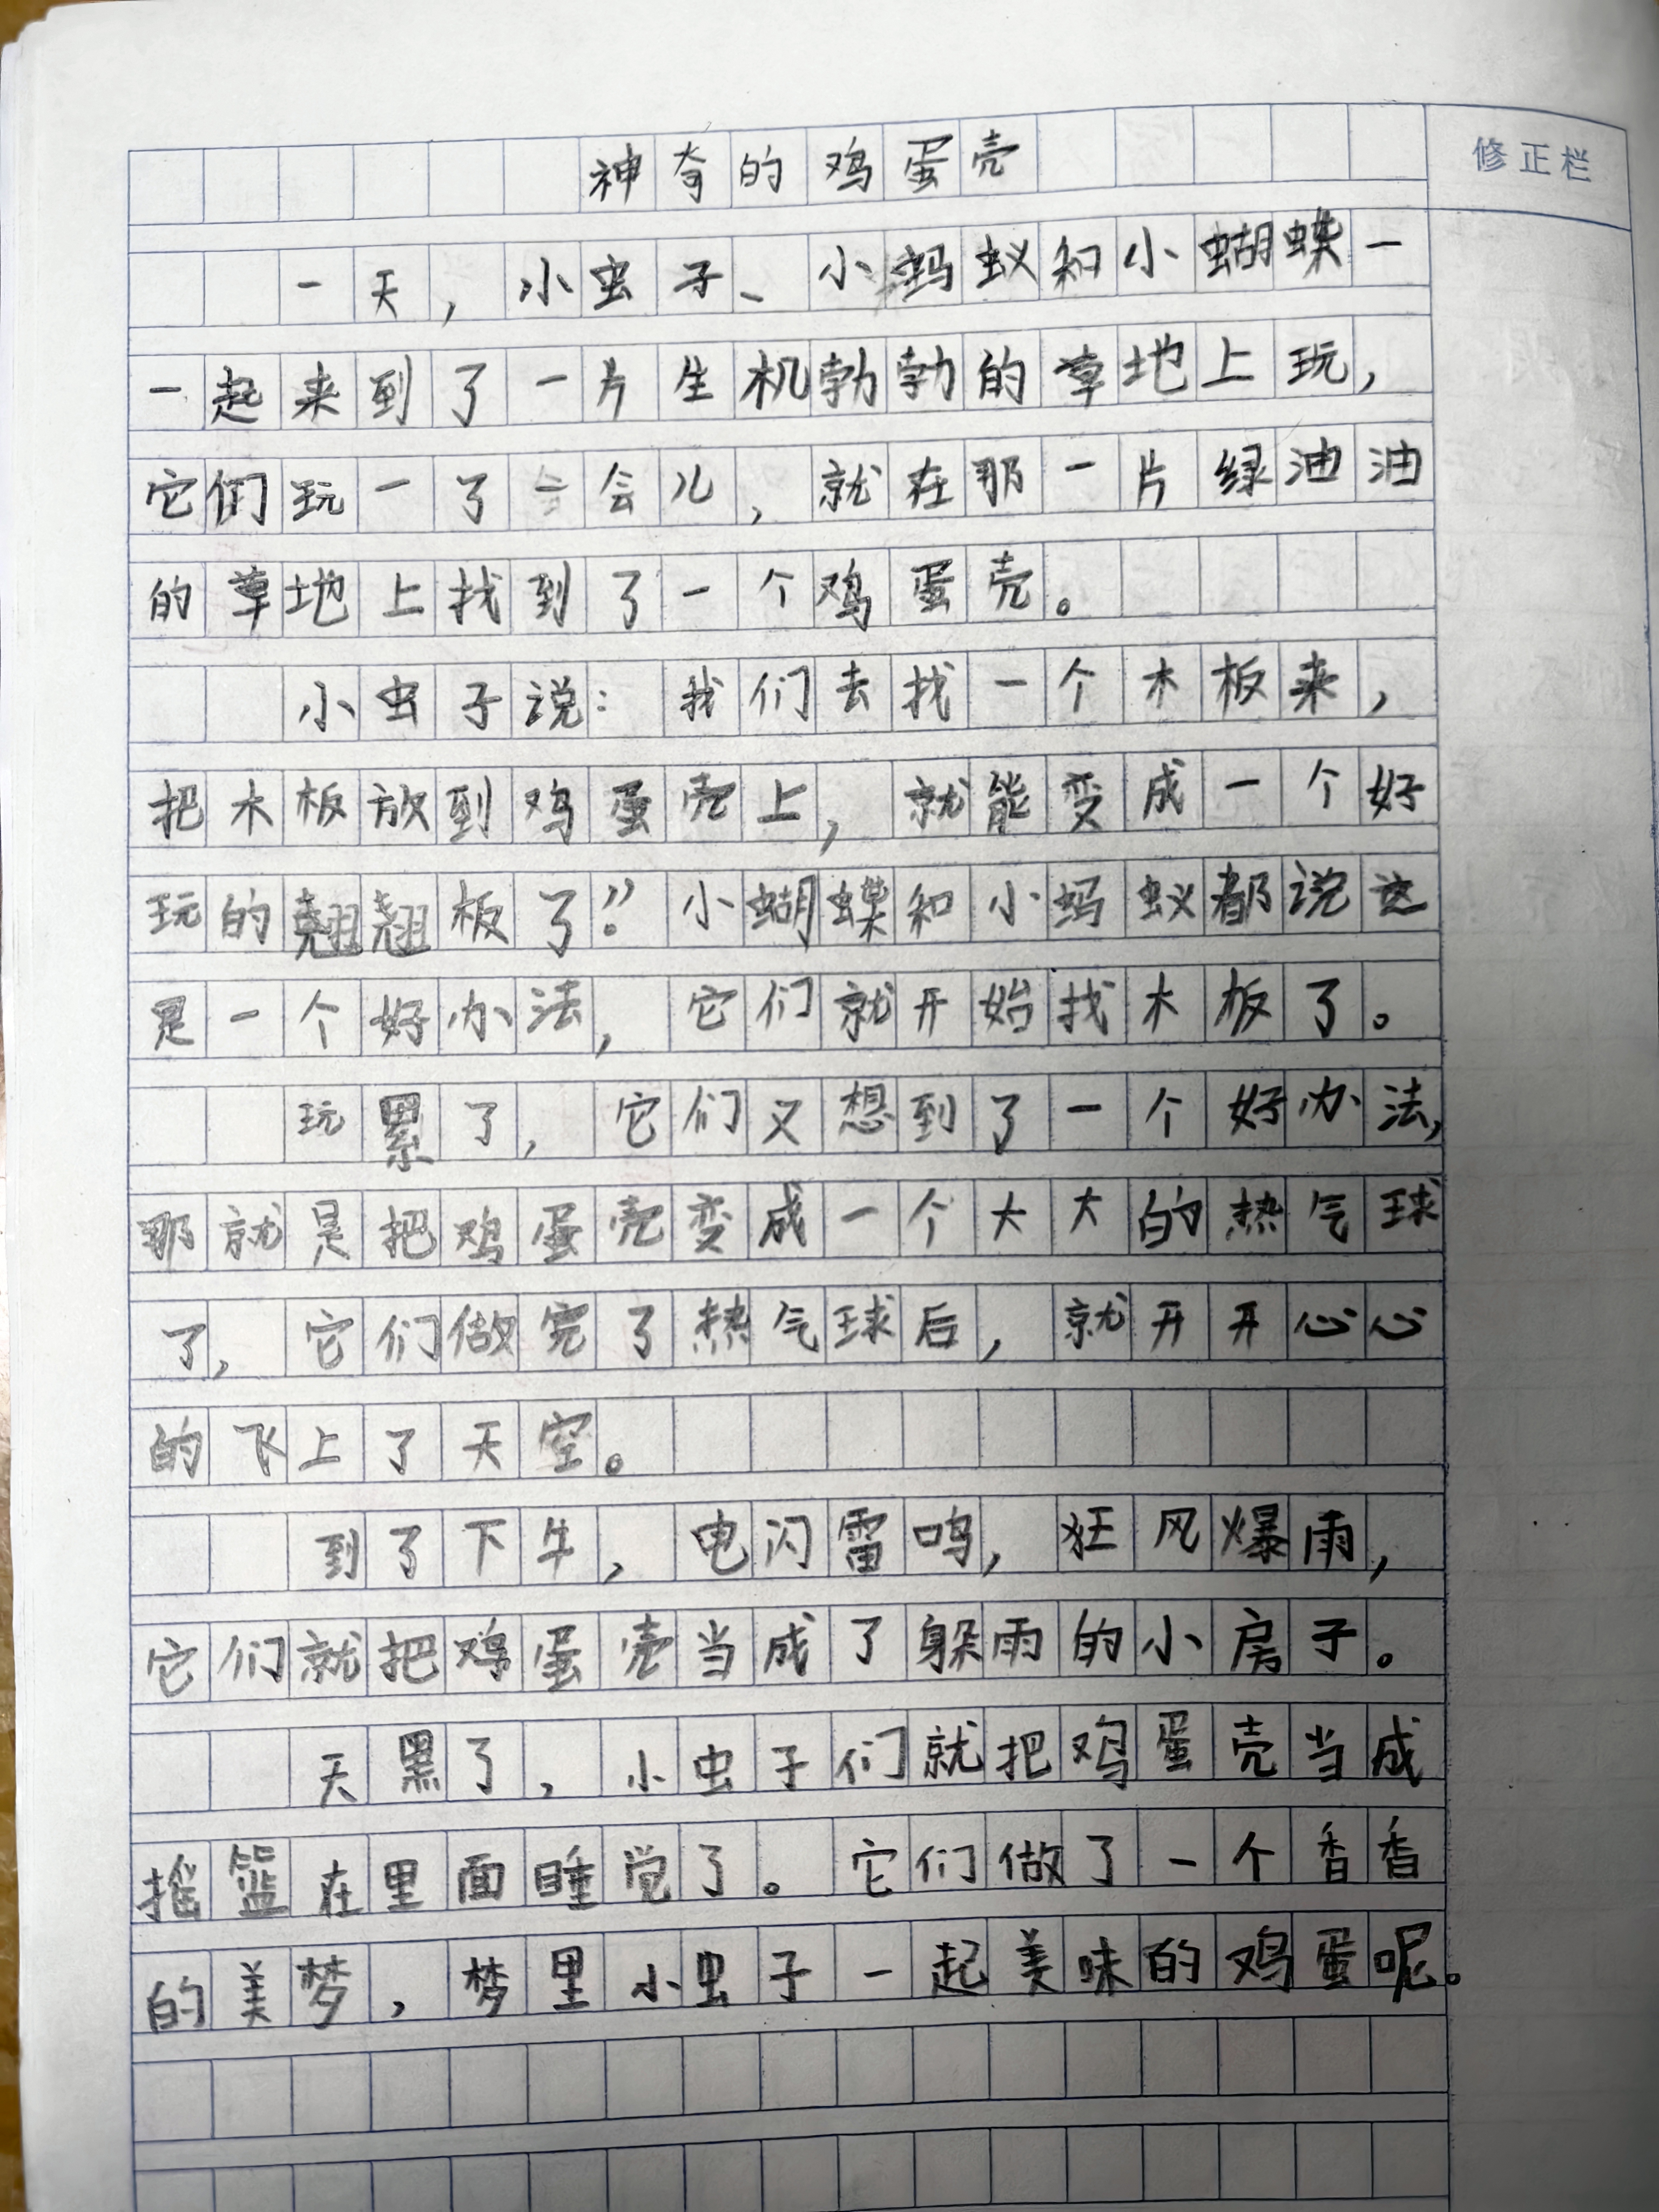 神奇的鸡蛋壳
修正栏
一天，小虫子、小蚂蚁和小蝴蝶一
一起来到了一片生机勃勃的草地上玩，
它们玩一了会儿，就在那一片绿油油
的草地上找到了一个鸡蛋壳。
小虫子说：我们去找一个木板来，
把木板放到鸡蛋壳上，就能变成一个好
玩的翘翘板了！”小蝴蝶和小蚂蚁都说这
是一个好办法，它们就开始找木板了。
玩累了，它们又想到了一个好办法，
那就是把鸡蛋壳变成一个大大的热气球
了，它们做完了热气球后，就开开心心
的飞上了天空。
到了下午，电闪雷鸣，狂风爆雨，
它们就把鸡蛋壳当成了躲雨的小房子。
天黑了，小虫子们就把鸡蛋壳当成
摇篮在里面睡觉了。它们做了一个香香
的美梦，梦里小虫子一起美味的鸡蛋呢。